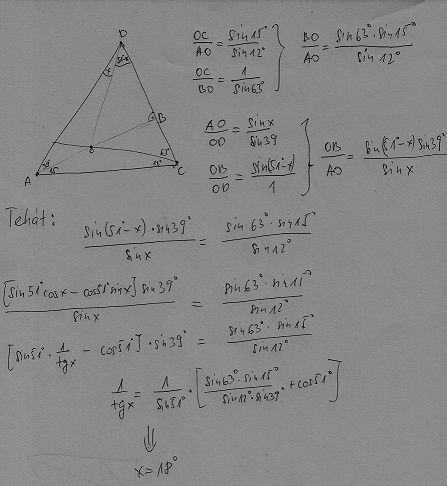 D
x 51-x
O
B
39° 63°
A 15° 12° C
OC/AO = sin15°/sin12°
OC/BO = 1/sin63°
BO/AO = sin63°·sin15°/sin12°
AO/OD = sinx/sin39
OB/OD = sin(51°-x)/1
OB/AO = sin(51°-x)sin39°/sinx
Tehát:
sin(51°-x)·sin39°/sinx = sin63°·sin15°/sin12°
[sin51°cosx - cos51°sinx]sin39°/sinx = sin63°·sin15°/sin12°
[sin51°·1/tgx - cos51°]·sin39° = sin63°·sin15°/sin12°
1/tgx = 1/sin51°·[sin63°·sin15°/sin12°·sin39° + cos51°]
⇓
x=18°